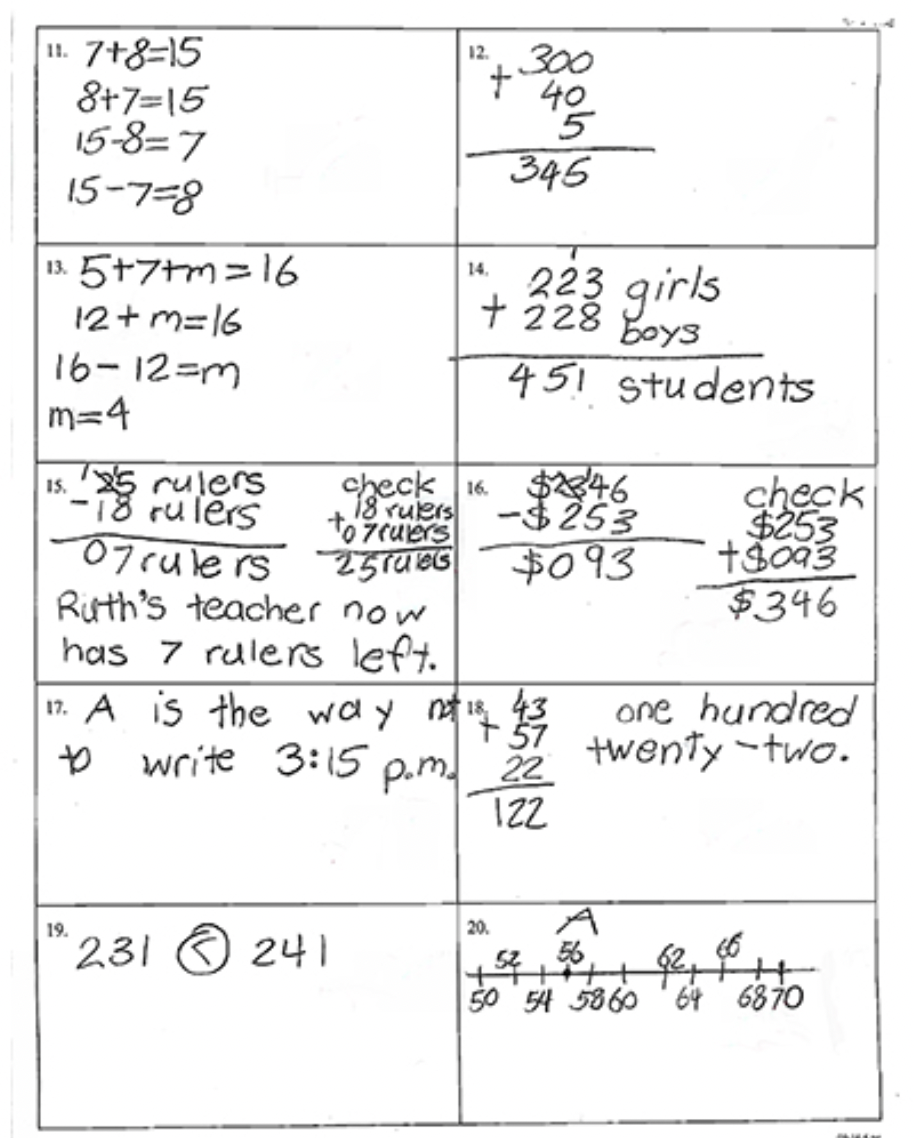 11. 7+8=15
8+7=15
15-8=7
15-7=8
12. 300
+ 40
5
345
13. 5+7+m=16
12+m=16
16-12=m
m=4
14. 1
223 girls
+ 228 boys
451 students
15. 25 rulers
-18 rulers
07 rulers
check
18 rulers
+07 rulers
25 rulers
Ruth's teacher now
has 7 rulers left.
16. $346
-$253
$093
check
$253
+$093
$346
17. A is the way not
to write 3:15 p.m.
18. 1
43
+ 57
22
122
one hundred
twenty-two.
19. 231 < 241
20. A
52 56 62 66
50 54 58 60 64 68 70